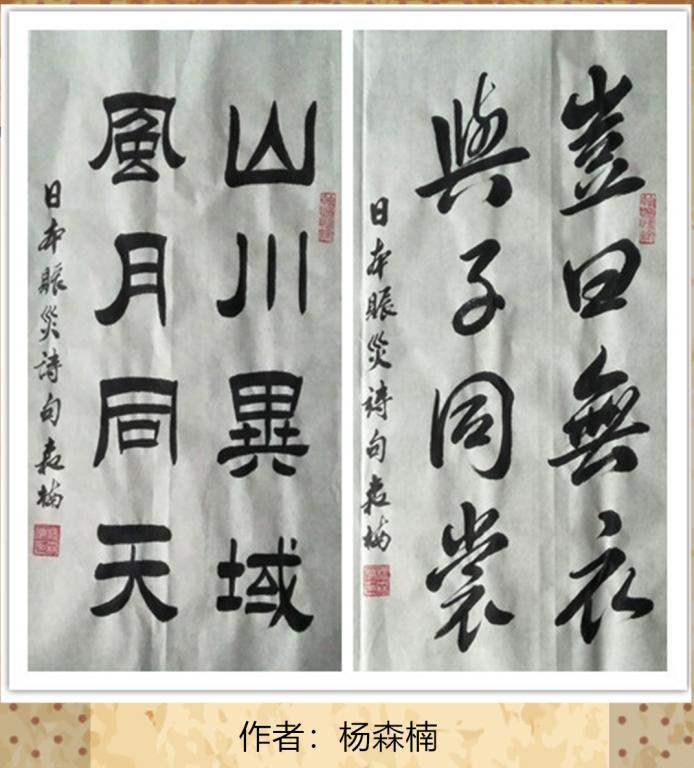 山川異域
風月同天
日本賑災詩句 森楠
豈曰無衣
與子同裳
日本賑災詩句 森楠
作者：杨森楠